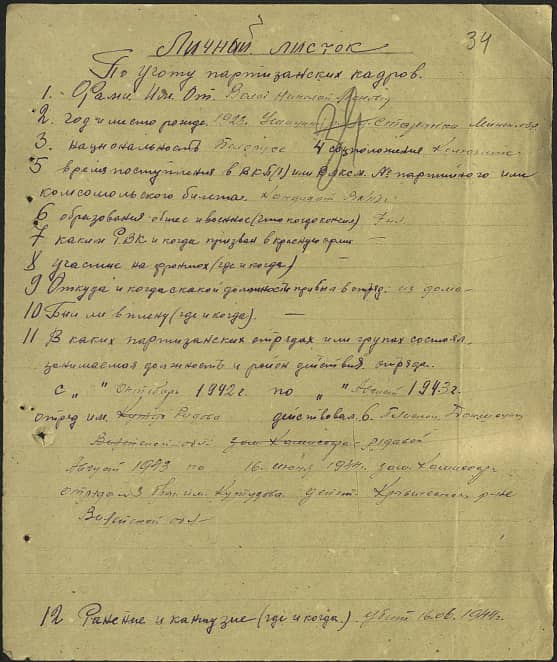 34
Личный листок
По учоту партизанских кадров.
1. Фами. Им. От. Николай
2. год и место рожде. 1923. Старжка
3. национальность Белорус 4 соцположения
5 время поступления в ВКП(б) или Влксм. № партийного или
комсомольского билета. Кандидат
6 образования общее и военное (что когда кончил) 7 кл
7 каким РВК и когда призван в красную армию —
8 участие на фронтах (где и когда) —
9 Откуда и когда с какой должности прибыл в отряд. из дома
10 Был ли в плену (где и когда). —
11 В каких партизанских отрядах или групах состоял
занимаемая должность и район действия отряда.
с " " Октябрь 1942 г. по " " Август 1943 г.
отряд им. действовал в.
Вилейской обл зам Комиссара рядовой
Август 1943 по 16 июня 1944г. зам. Комиссар
отряда №3 бриг. им. Кутузова. действ. р-не
Вилейской обл
12 Ранение и кантузие (где и когда). убит 16.06.1944г.